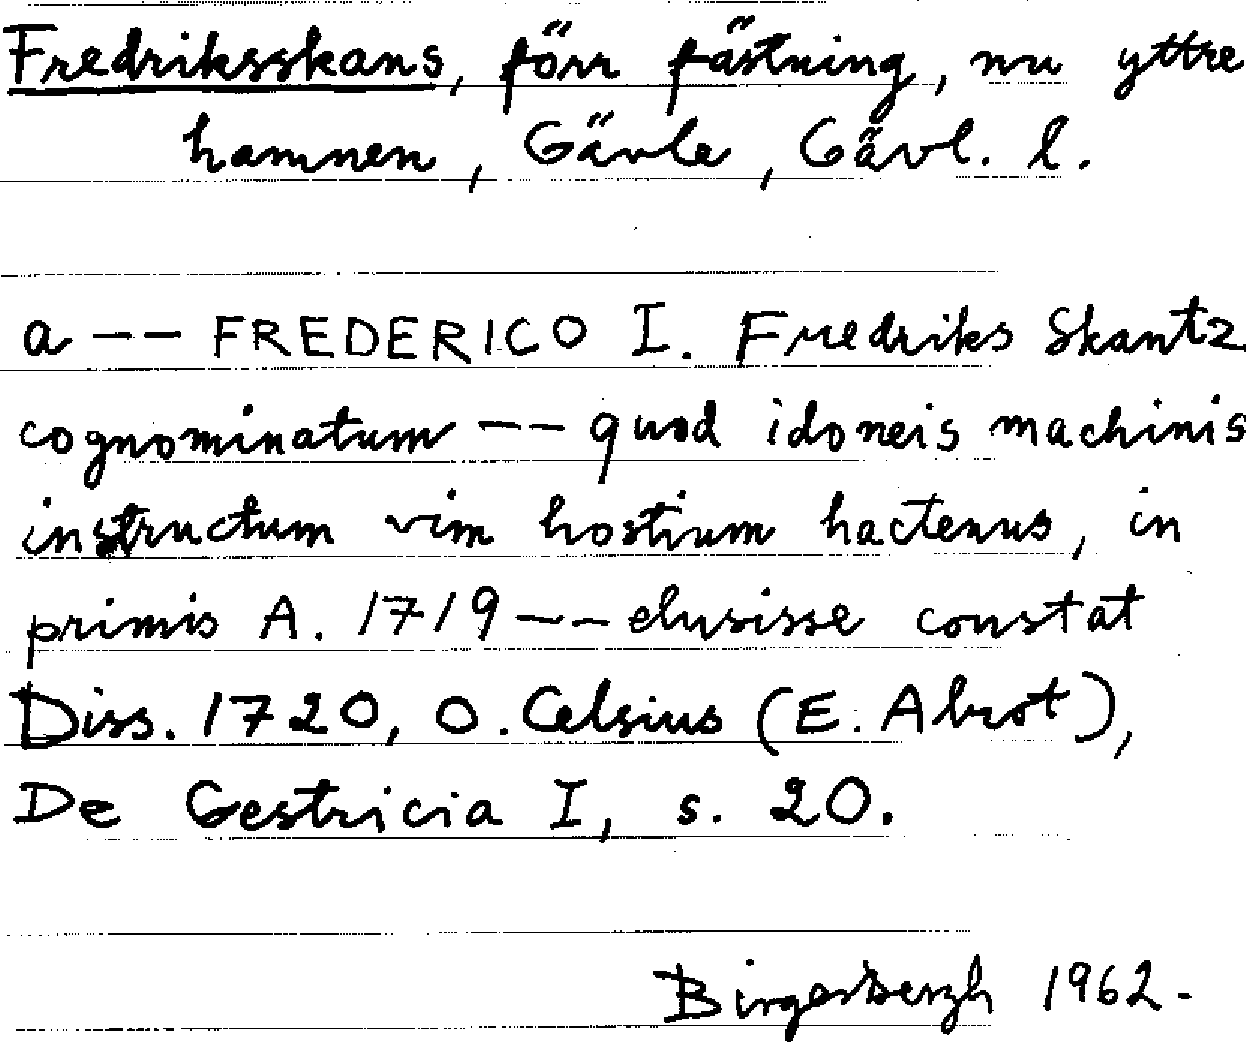 Fredriksskans, förr fästning, nu yttre
hamnen, Gävle, Gävl. l.
a -- FREDERICO I. Fredriks Skantz
cognominatum -- quod idoneis machinis
instructum vim hostium hactenus, in
primis A. 1719 -- elusisse constat
Diss. 1720, O. Celsius (E. Abrot),
De Gestricia I, s. 20.
Birger Bergh 1962.